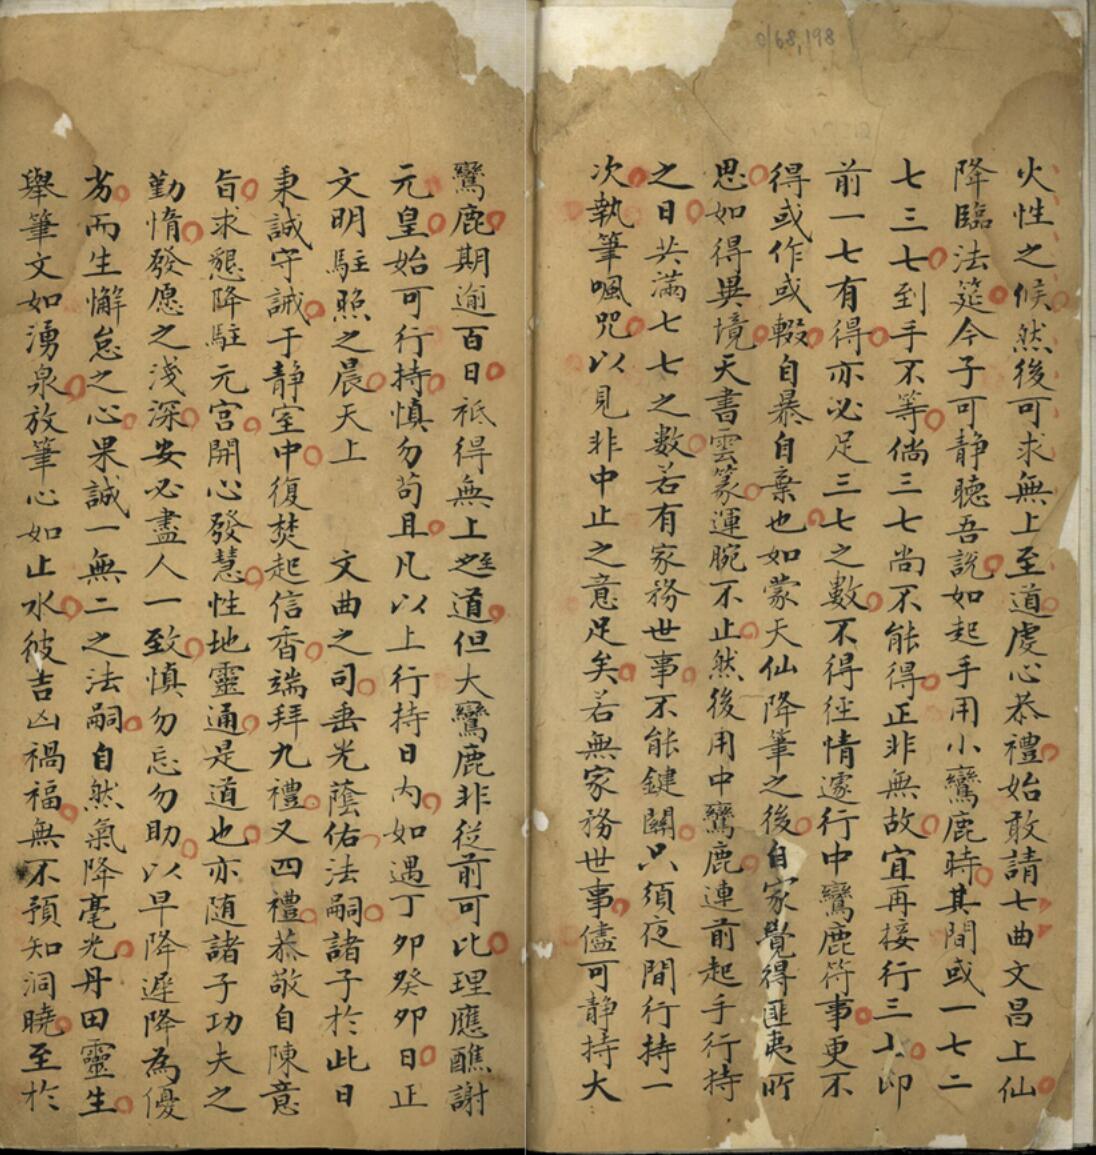 0/68,198
火性之候然後可求無上至道虔心恭禮始敢請七曲文昌上仙
降臨法筵今子可静聽吾説如起手用小鸞鹿時其間或一七二
七三七到手不等倘三七尚不能得正非無故宜再接行三七即
前一七有得亦必足三七之數不得徑情遽行中鸞鹿符事更不
得或作或輟自暴自棄也如蒙天仙降筆之後自家覺得匪夷所
思如得異境天書雲篆運腕不止然後用中鸞鹿連前起手行持
之日共滿七七之數若有家務世事不能鍵關只須夜間行持一
次執筆唱咒以見非中止之意足矣若無家務世事儘可静持大
鸞鹿期逾百日祗得無上至之道但大鸞鹿非從前可比理應醮謝
元皇始可行持慎勿苟且凡以上行持日内如遇丁卯癸卯日正
文明駐照之晨天上 文曲之司垂光蔭佑法嗣諸子於此日
秉誠守誡于静室中復焚起信香端拜九禮又四禮恭敬自陳意
旨求懇降駐元宮開心發慧性地靈通是道也亦随諸子功夫之
勤惰發愿之淺深安必盡人一致慎勿忘勿助以早降遲降為優
劣而生懈怠之心果誠一無二之法嗣自然氣降毫光丹田靈生
舉筆文如湧泉放筆心如止水彼吉凶禍福無不預知洞曉至於